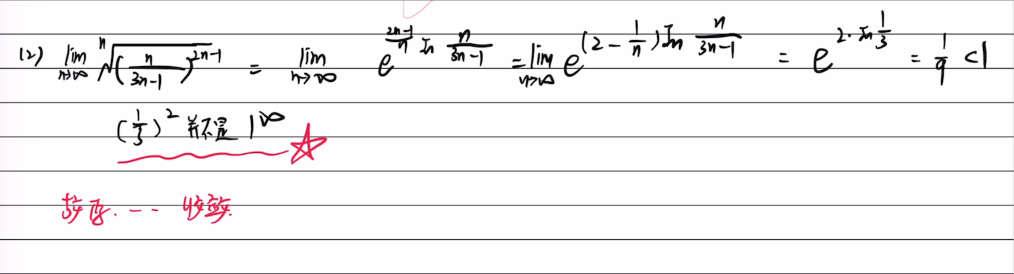 (2) lim n→∞ ⁿ√(n/(3n-1))^(2n-1) = lim n→∞ e^((2n-1)/n ln n/(3n-1)) = lim n→∞ e^((2-1/n) ln n/(3n-1)) = e^(2·ln 1/3) = 1/9 <1
(1/3)² 并不是 1^∞ ☆
故原.-- 收敛.